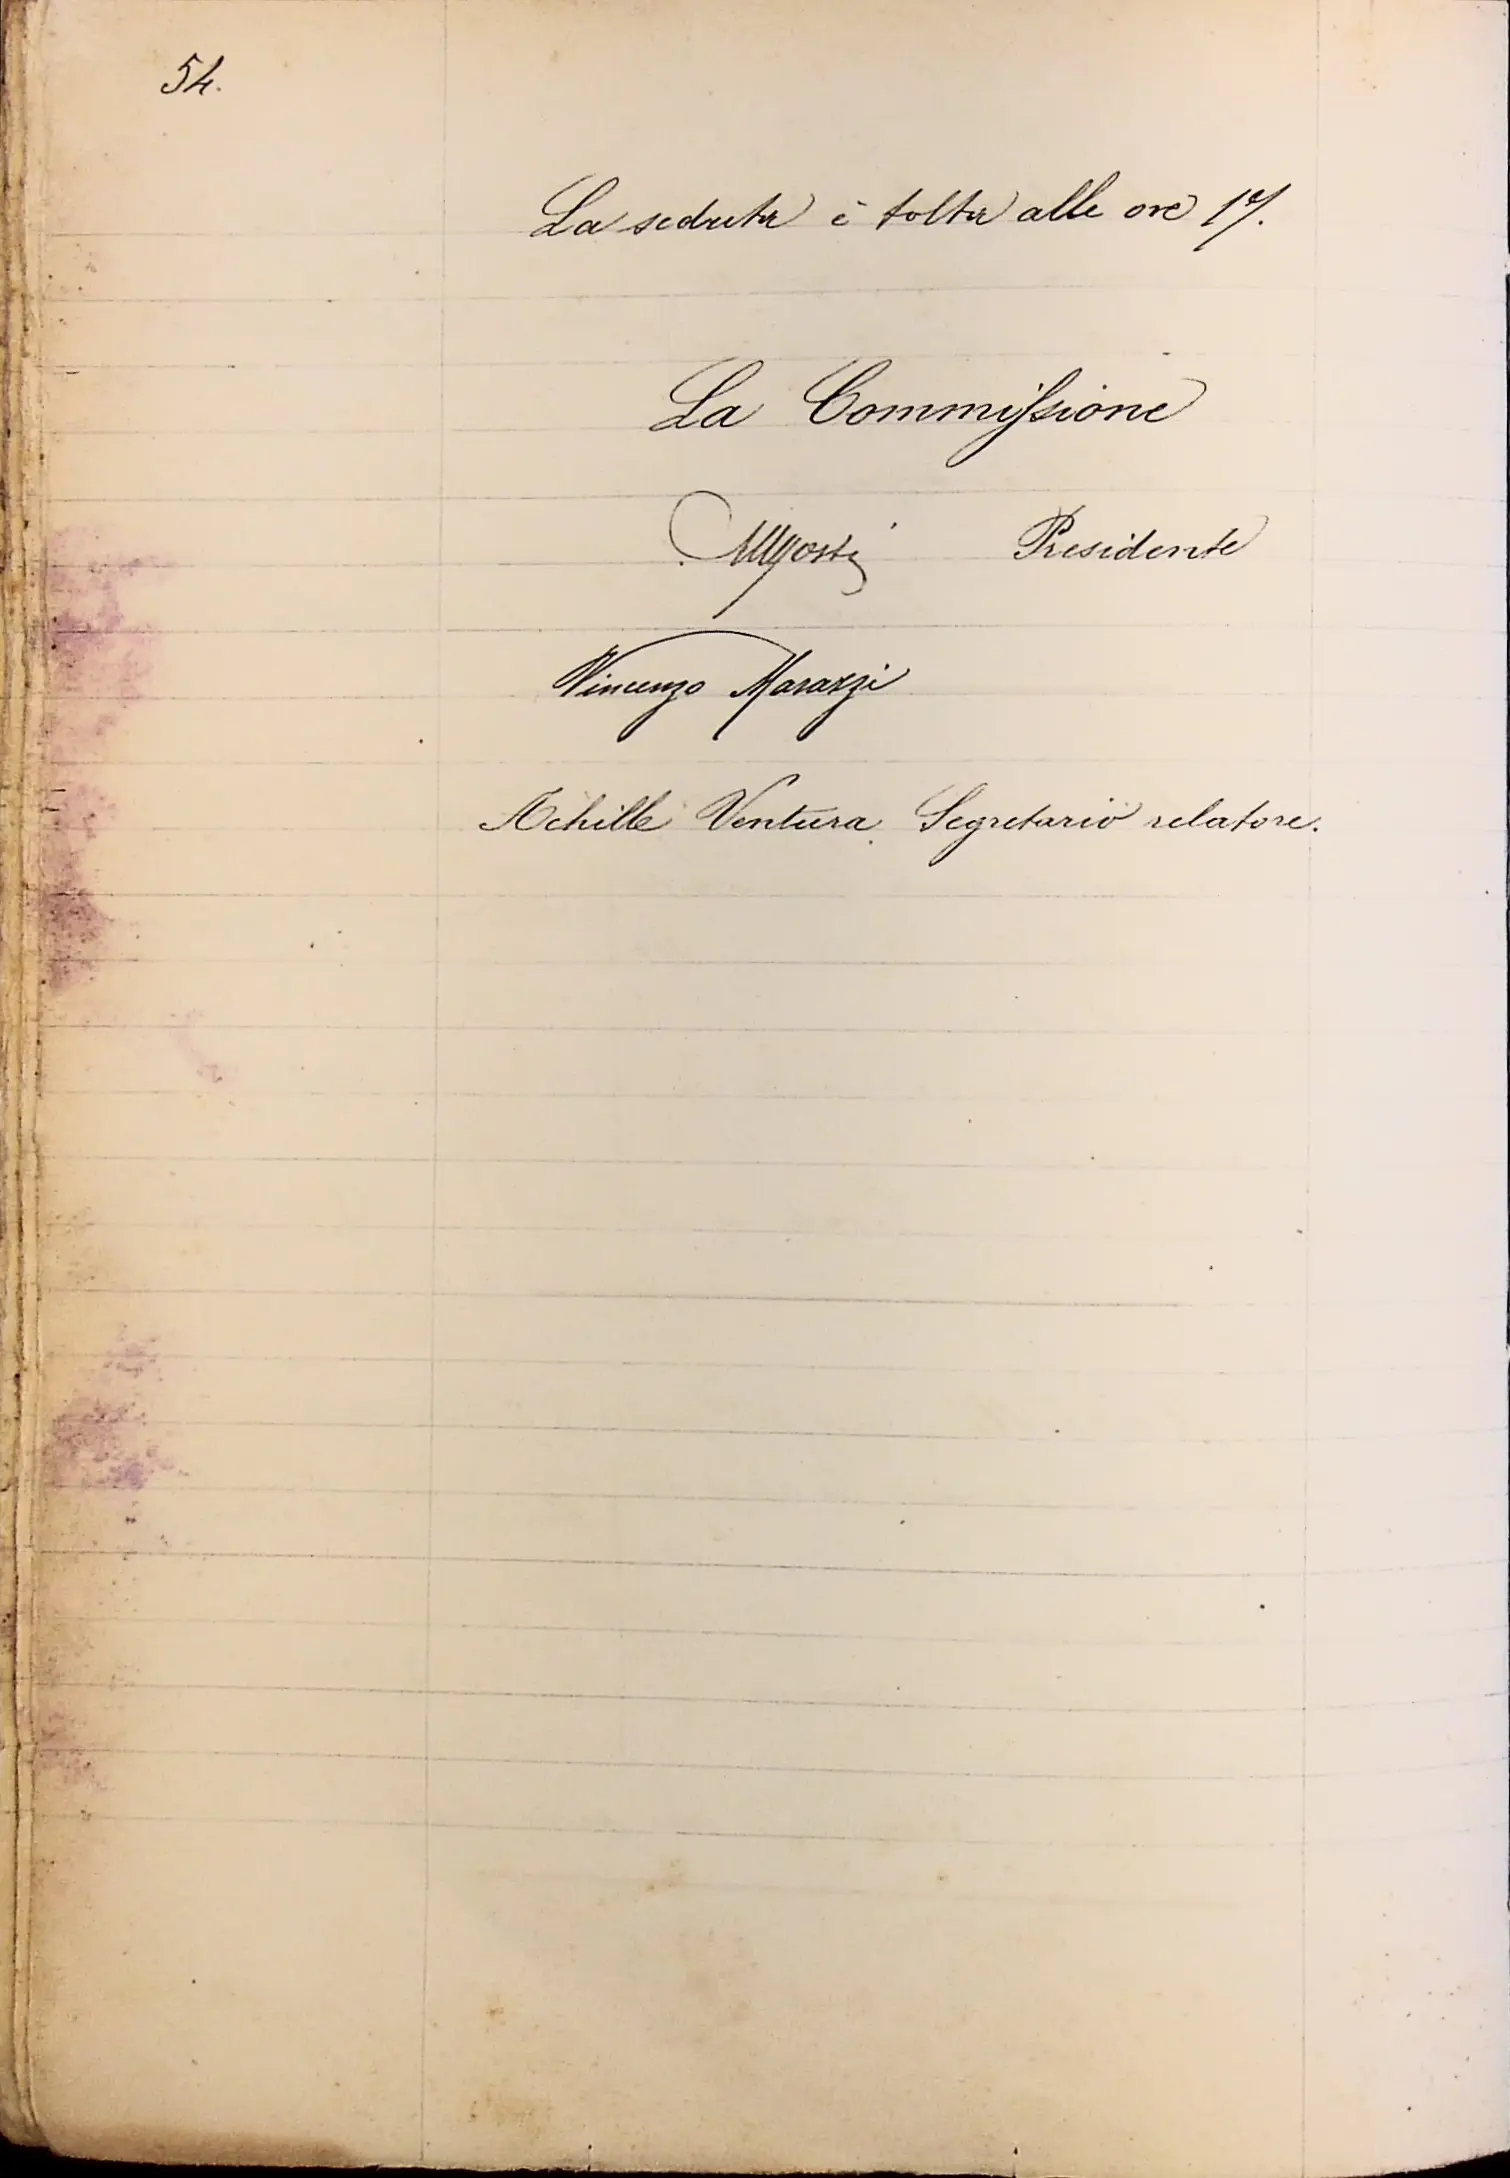 54.
La seduta è tolta alle ore 17.
La Commissione
Presidente
Vincenzo Marazzi
Achille Ventura Segretario relatore.